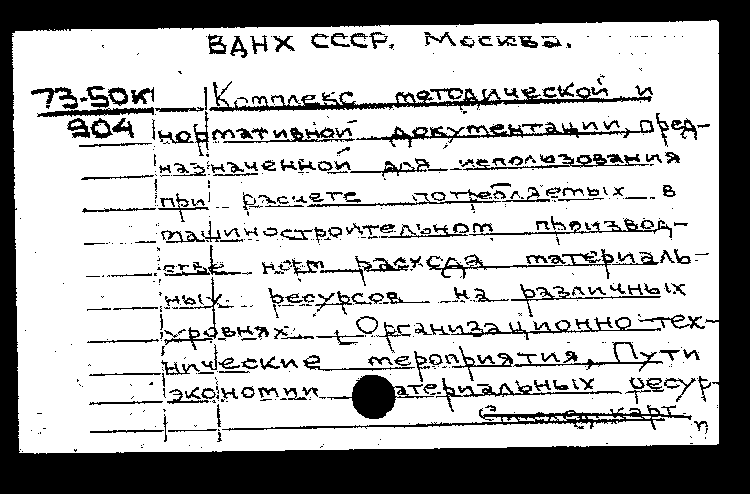 ВДНХ СССР. Москва.
73-50К Комплекс методической и
904 нормативной документации, пред-
назначенной для использования
при расчете потребляемых в
машиностроительном производ-
стве норм расхода материаль-
ных ресурсов на различных
уровнях. [Организационно-тех-
нические мероприятия, Пути
экономии материальных ресур-
См. след. карт.